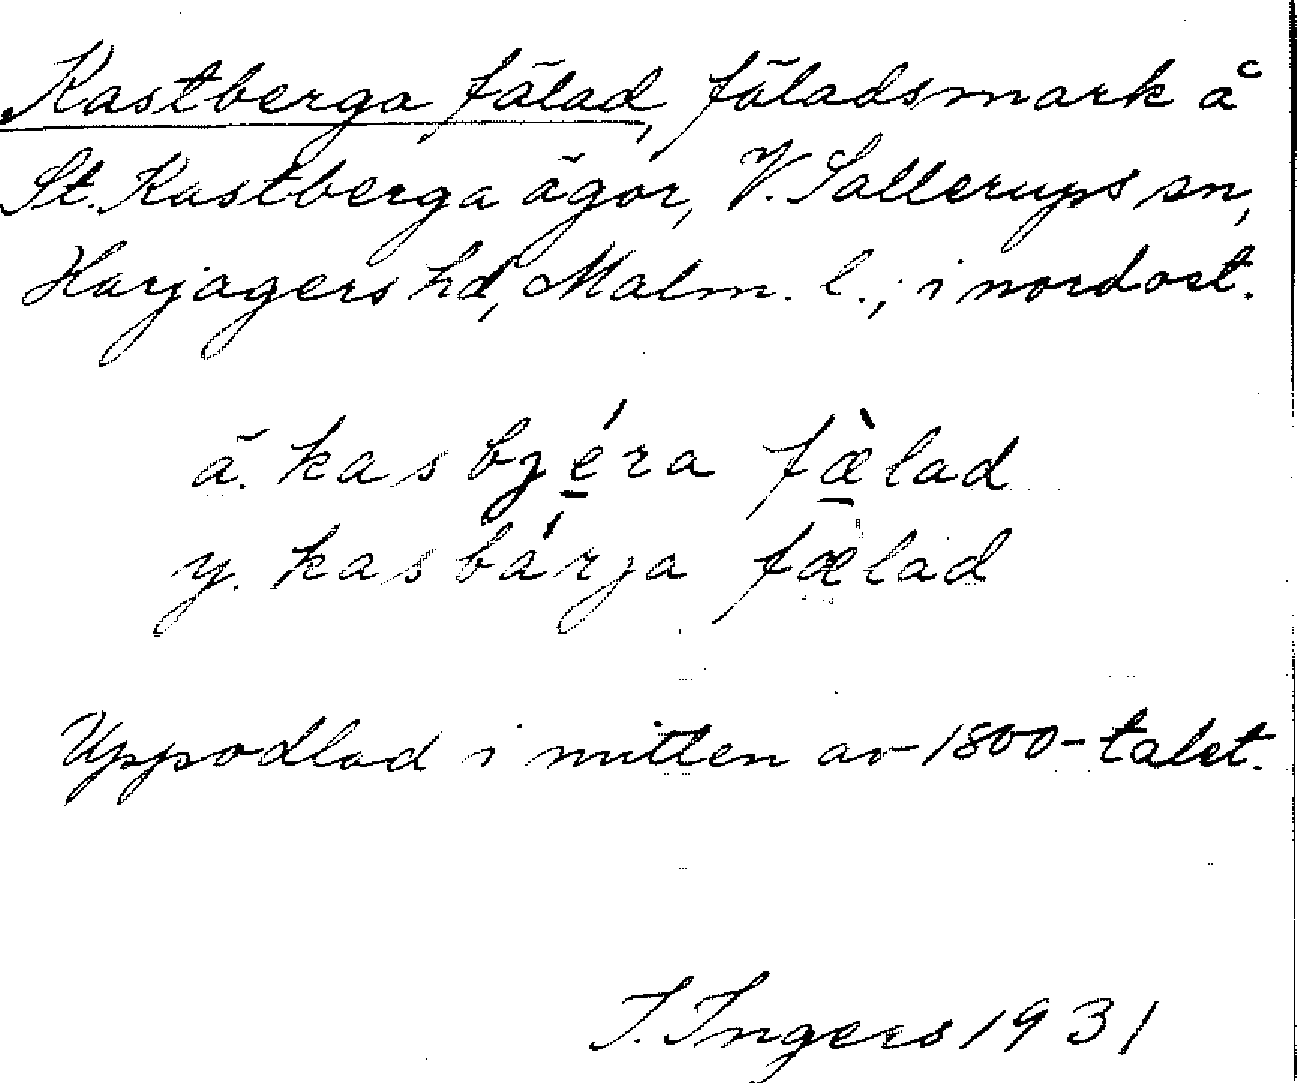 Kastberga fälad, fäladsmark å
St. Kastberga ägor, V. Sallerups sn,
Harjagers hd, Malm. l.; i nordost.
ä. kasbjéra fæ̀lad
y. kasbárja fælad
Uppodlad i mitten av 1800-talet.
I. Ingers 1931